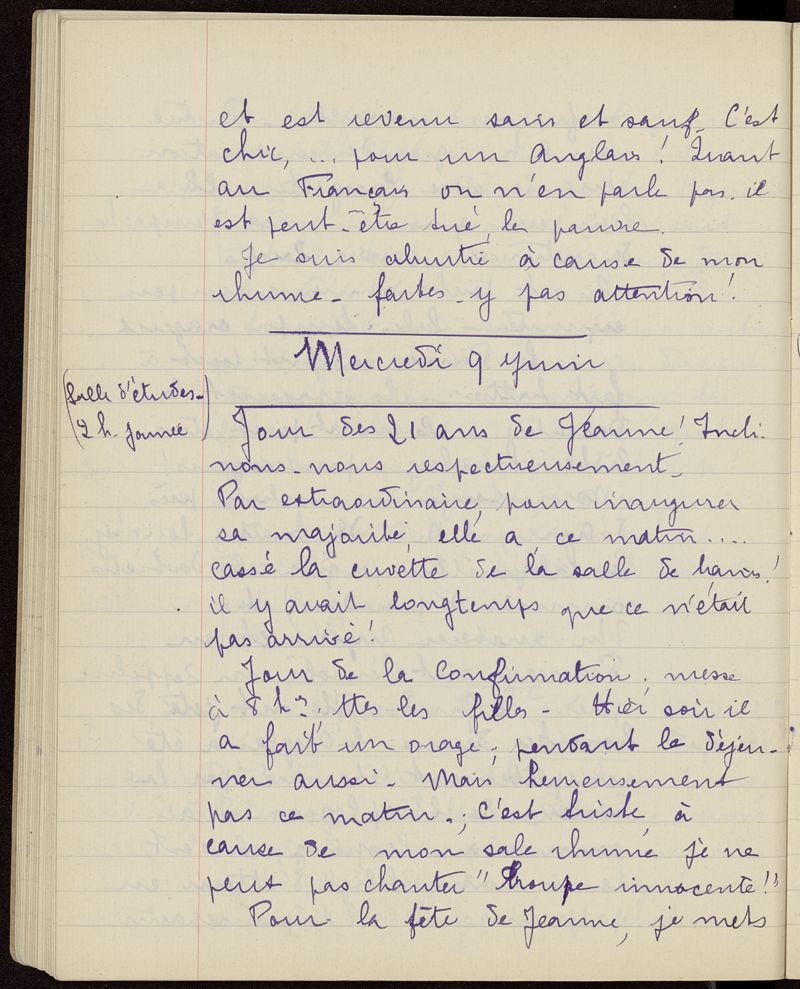 et est revenu sain et sauf. C'est
chic, ... pour un Anglais ! Quant
au Français on n'en parle pas. il
est peut-être tué, le pauvre.
Je suis abrutie à cause de mon
rhume - faites-y pas attention !
Mercredi 9 juin
(Salle d'études -
2 h. journée)
Jour des 21 ans de Jeanne ! Incli-
nons-nous respectueusement.
Par extraordinaire, pour inaugurer
sa majorité, elle a ce matin....
cassé la cuvette de la salle de bains !
il y avait longtemps que ce n'était
pas arrivé !
Jour de la Confirmation. messe
à 8 h ; ttes les filles - Hier soir il
a fait un orage ; pendant le déjeu-
ner aussi. Mais heureusement
pas ce matin. ; C'est triste, à
cause de mon sale rhume je ne
peux pas chanter "Troupe innocente !"
Pour la fête de Jeanne, je mets